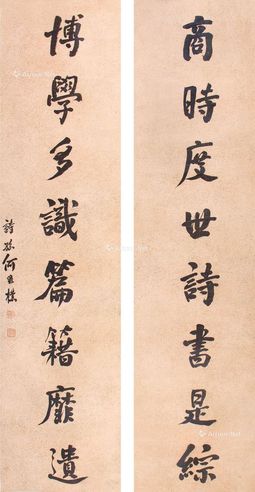 商時度世詩書是綜
博學多識篇籍靡遺
詩孫何維樸